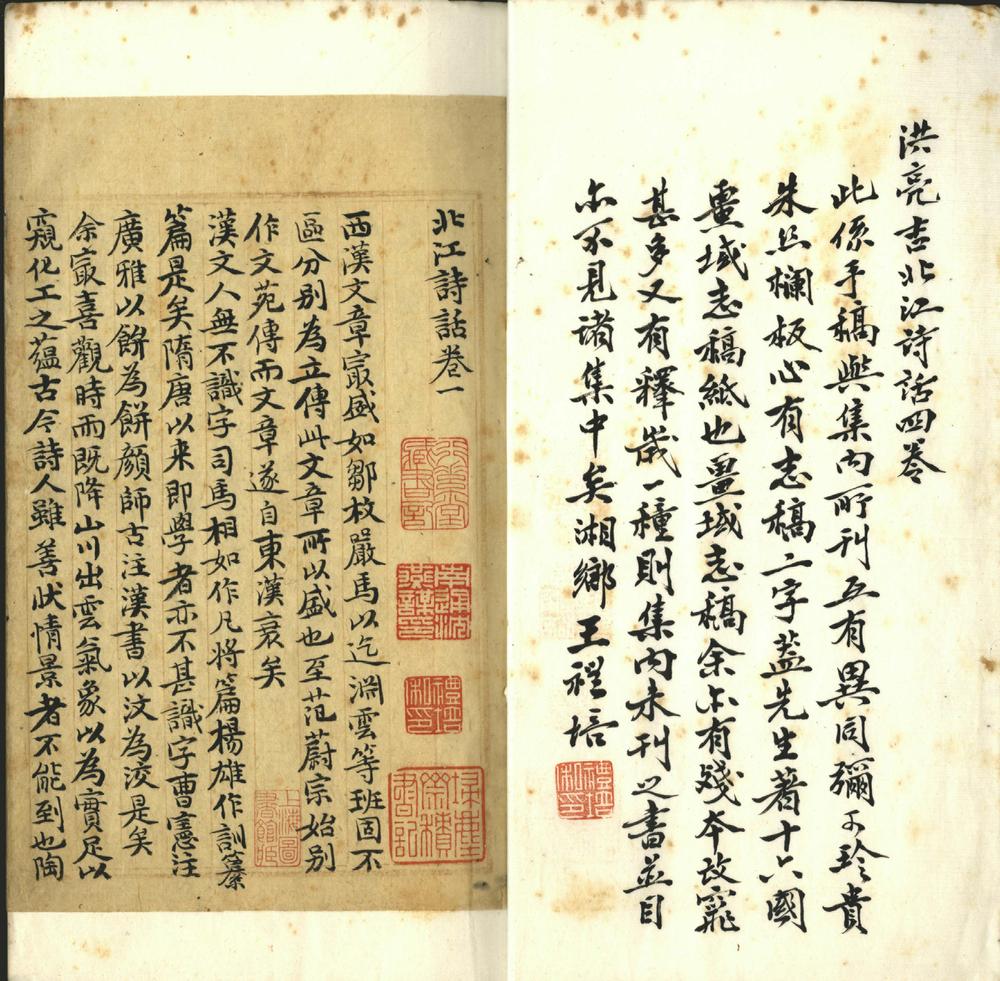 洪亮吉北江詩話四卷
此係手稿與集内所刊互有異同彌可珍貴
朱絲欄板心有志稿二字蓋先生著十六國
畺域志稿紙也畺域志稿余尓有殘本改竄
甚多又有釋歲一種則集内未刊之書並目
尓不見諸集中矣湘鄉王禮培
禮培私印
北江詩話卷一
西漢文章㝡盛如鄒枚嚴馬以迄淵雲等班固不
區分別為立傳此文章所以盛也至范蔚宗始別
作文苑傳而文章遂自東漢衰矣
漢文人無不識字司馬相如作凡將篇楊雄作訓纂
篇是矣隋唐以来即學者亦不甚識字曹憲注
廣雅以餅為餅顔師古注漢書以汶為洨是矣
余㝡喜觀時雨既降山川出雲氣象以為實足以
窺化工之藴古今詩人雖善狀情景者不能到也陶
禮培私印
上海圖書館藏
埽塵齋積書記